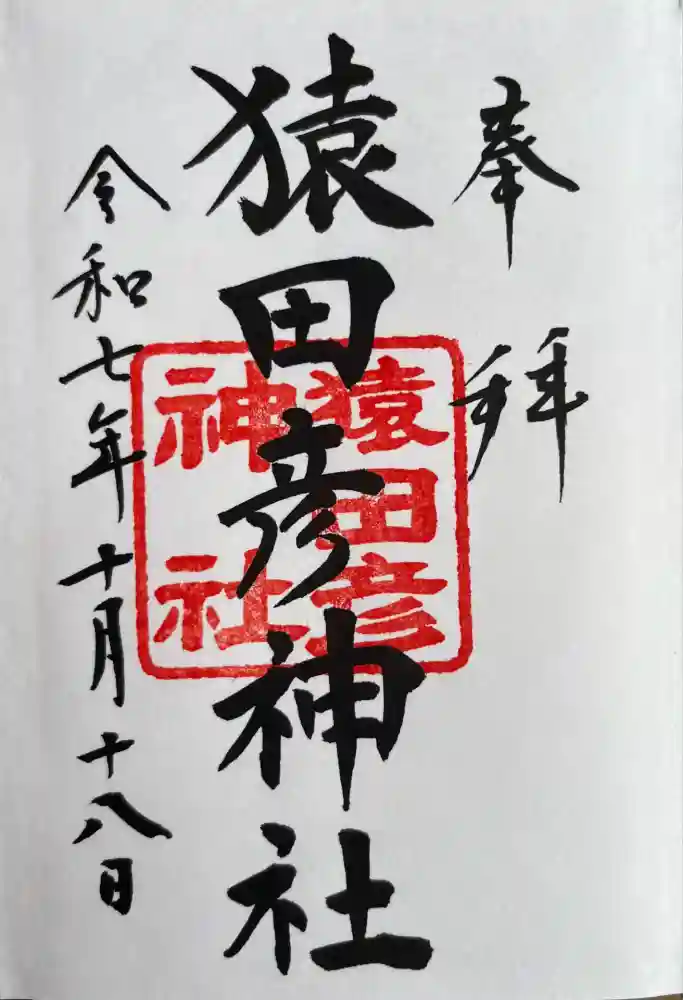 奉拝
猿田彦神社
猿田彦
神社
令和七年十月十八日